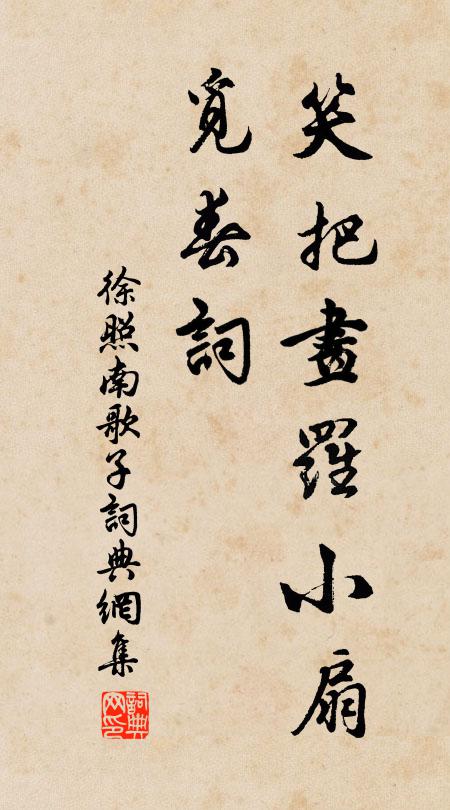 笑把畫羅小扇
覓春詞
徐照南歌子詞典網集
詞典网印